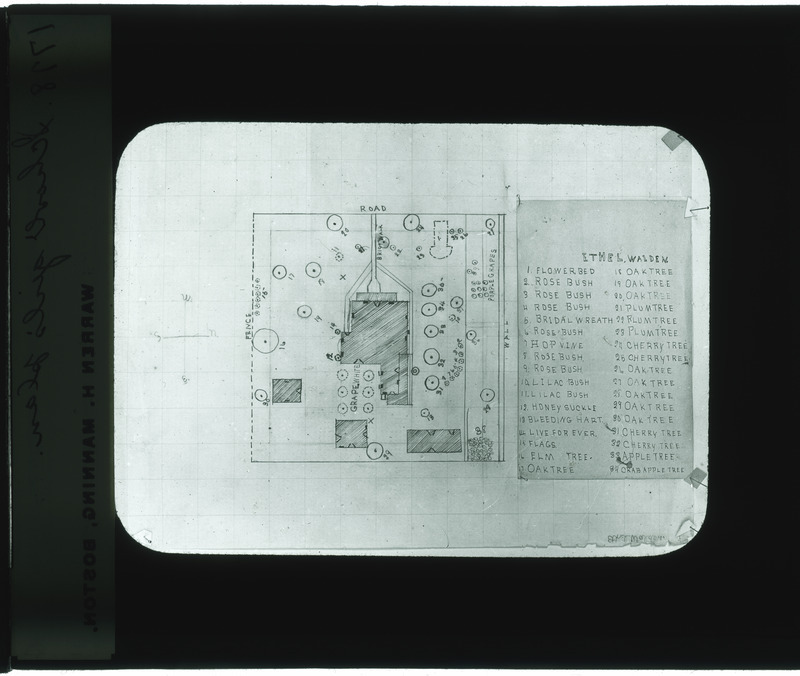 1778. School girls plan.
WARREN H. MANNING, BOSTON.
ROAD
FENCE
16
17
GRAPE WHITE
PURPLE GRAPES
WALL
ETHEL, WALDEN
1. FLOWERBED
2. ROSE BUSH
3 ROSE BUSH
4 ROSE BUSH
5 BRIDAL WREATH
6 ROSE-BUSH
7 HOP VINE
8 ROSE BUSH
9 ROSE BUSH
10 LILAC BUSH
11 LILAC BUSH
12. HONEY SUCKLE
13 BLEEDING HART
14 LIVE FOR EVER
15 FLAGS
16 ELM TREE.
17 OAK TREE
18 OAK TREE
19 OAK TREE
20 OAK TREE
21 PLUM TREE
22 PLUM TREE
23 PLUM TREE
24 CHERRY TREE
25 CHERRY TREE
26 OAK TREE
27 OAK TREE
28 OAK TREE
29 OAK TREE
30 OAK TREE
31 CHERRY TREE
32 CHERRY TREE
33 APPLE TREE
34 CRAB APPLE TREE